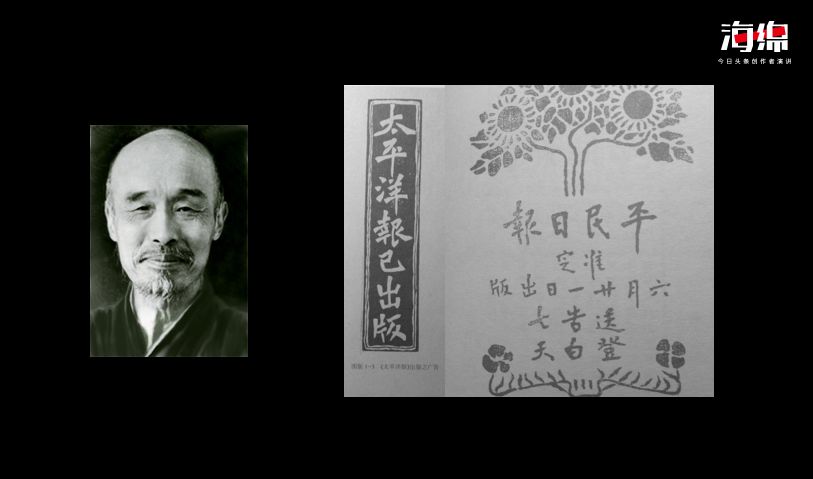 海绵
今日头条创作者演讲
太平洋報已出版
图版 1-3 《太平洋报》出版之广告
平民日報
准定
六月廿一日出版
送登
告白
七天